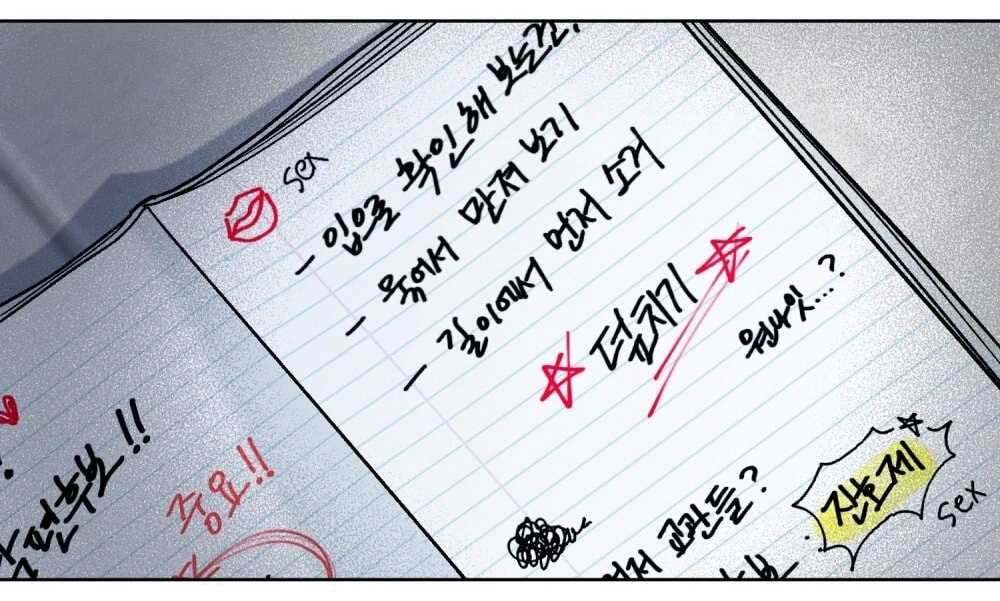 sex
- 입을 확인해 보는건
- 몸에서 만져 보기
- 길이에서 먼저 소거
덮치기
원나잇...?
후보!!
중요!!
먼저 교관들?
진호제
sex